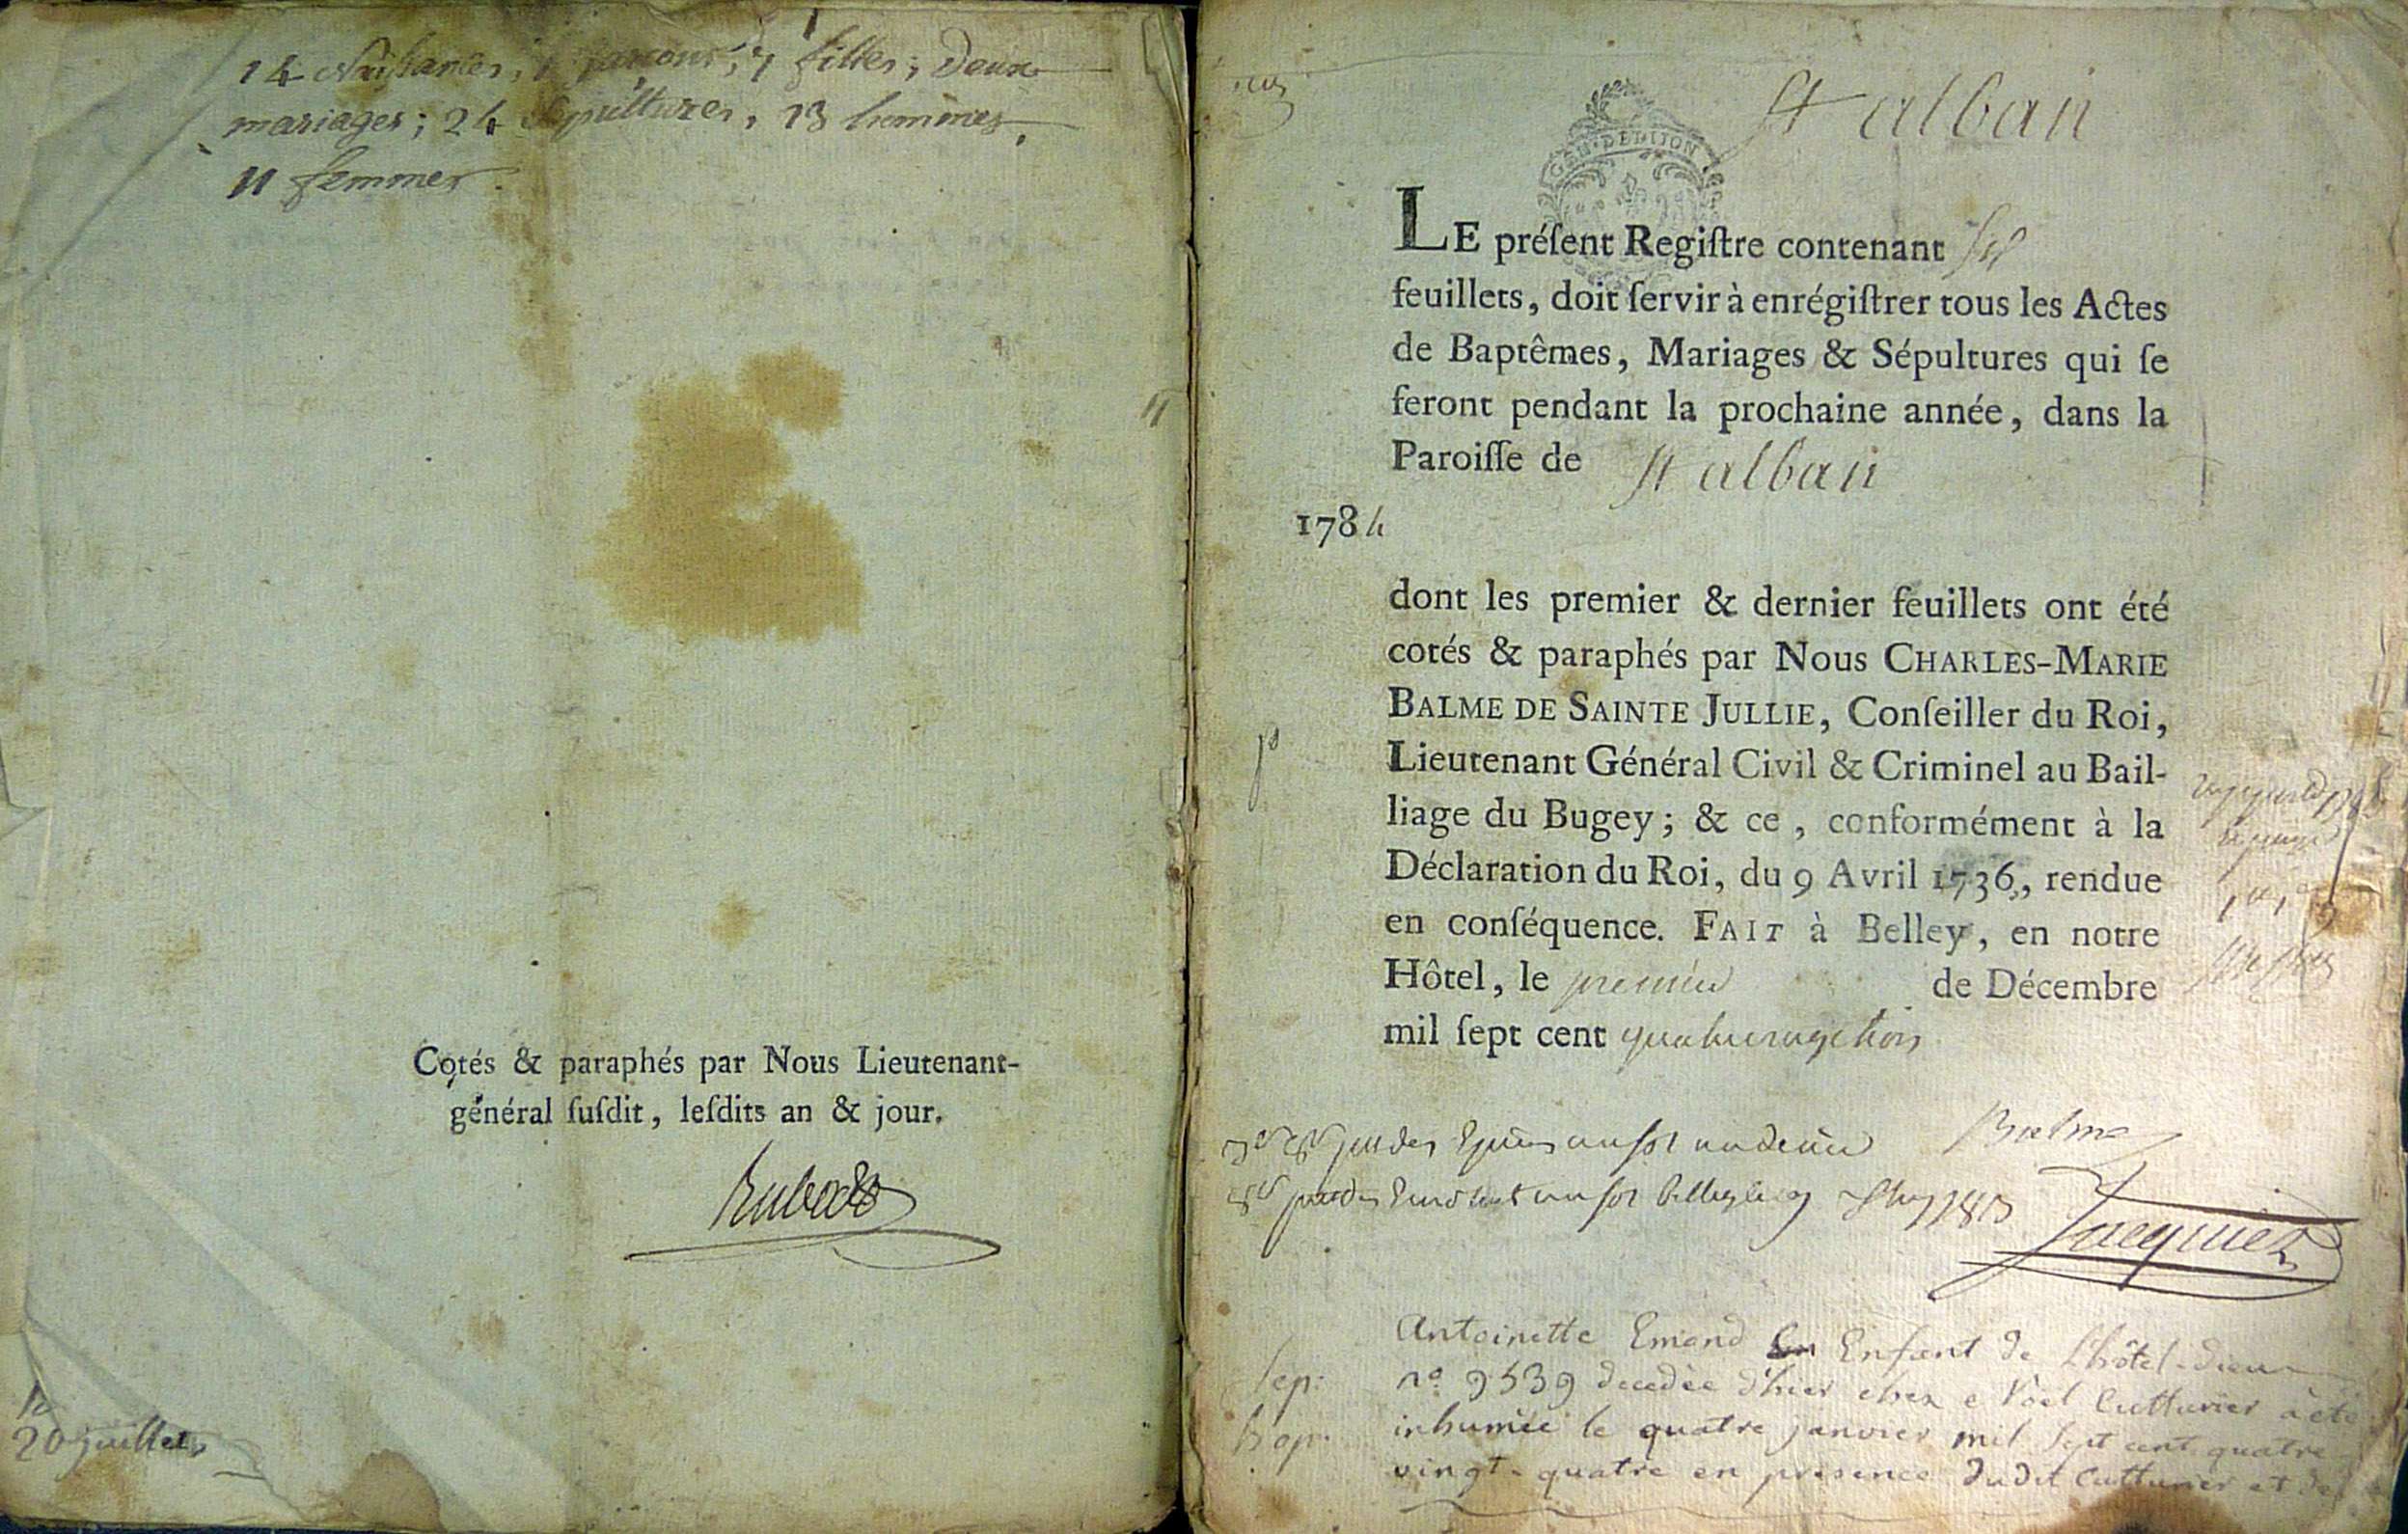 14 Naissances, garçons, 7 filles; Deux
mariages; 24 Sepultures, 13 hommes,
11 femmes.
Cotés & paraphés par Nous Lieutenant-
général ſuſdit, leſdits an & jour.
20 juillet
St alban
GEN·DE DIJON
LE préſent Regiſtre contenant
feuillets, doit ſervir à enrégiſtrer tous les Actes
de Baptêmes, Mariages & Sépultures qui ſe
feront pendant la prochaine année, dans la
Paroiſſe de St alban
1784
dont les premier & dernier feuillets ont été
cotés & paraphés par Nous CHARLES-MARIE
BALME DE SAINTE JULLIE, Conſeiller du Roi,
Lieutenant Général Civil & Criminel au Bail-
liage du Bugey; & ce, conformément à la
Déclaration du Roi, du 9 Avril 1736, rendue
en conſéquence. FAIT à Belley, en notre
Hôtel, le premier de Décembre
mil ſept cent quatrevingt trois
Balme
Jacquier
Antoinette Emond Enfant de l'hôtel-dieu
Sep: n° 9539 decedée d'hier chez Noel Cutturier a été
hop: inhumée le quatre janvier mil sept cent quatre
vingt-quatre en presence dudit Cutturier et de